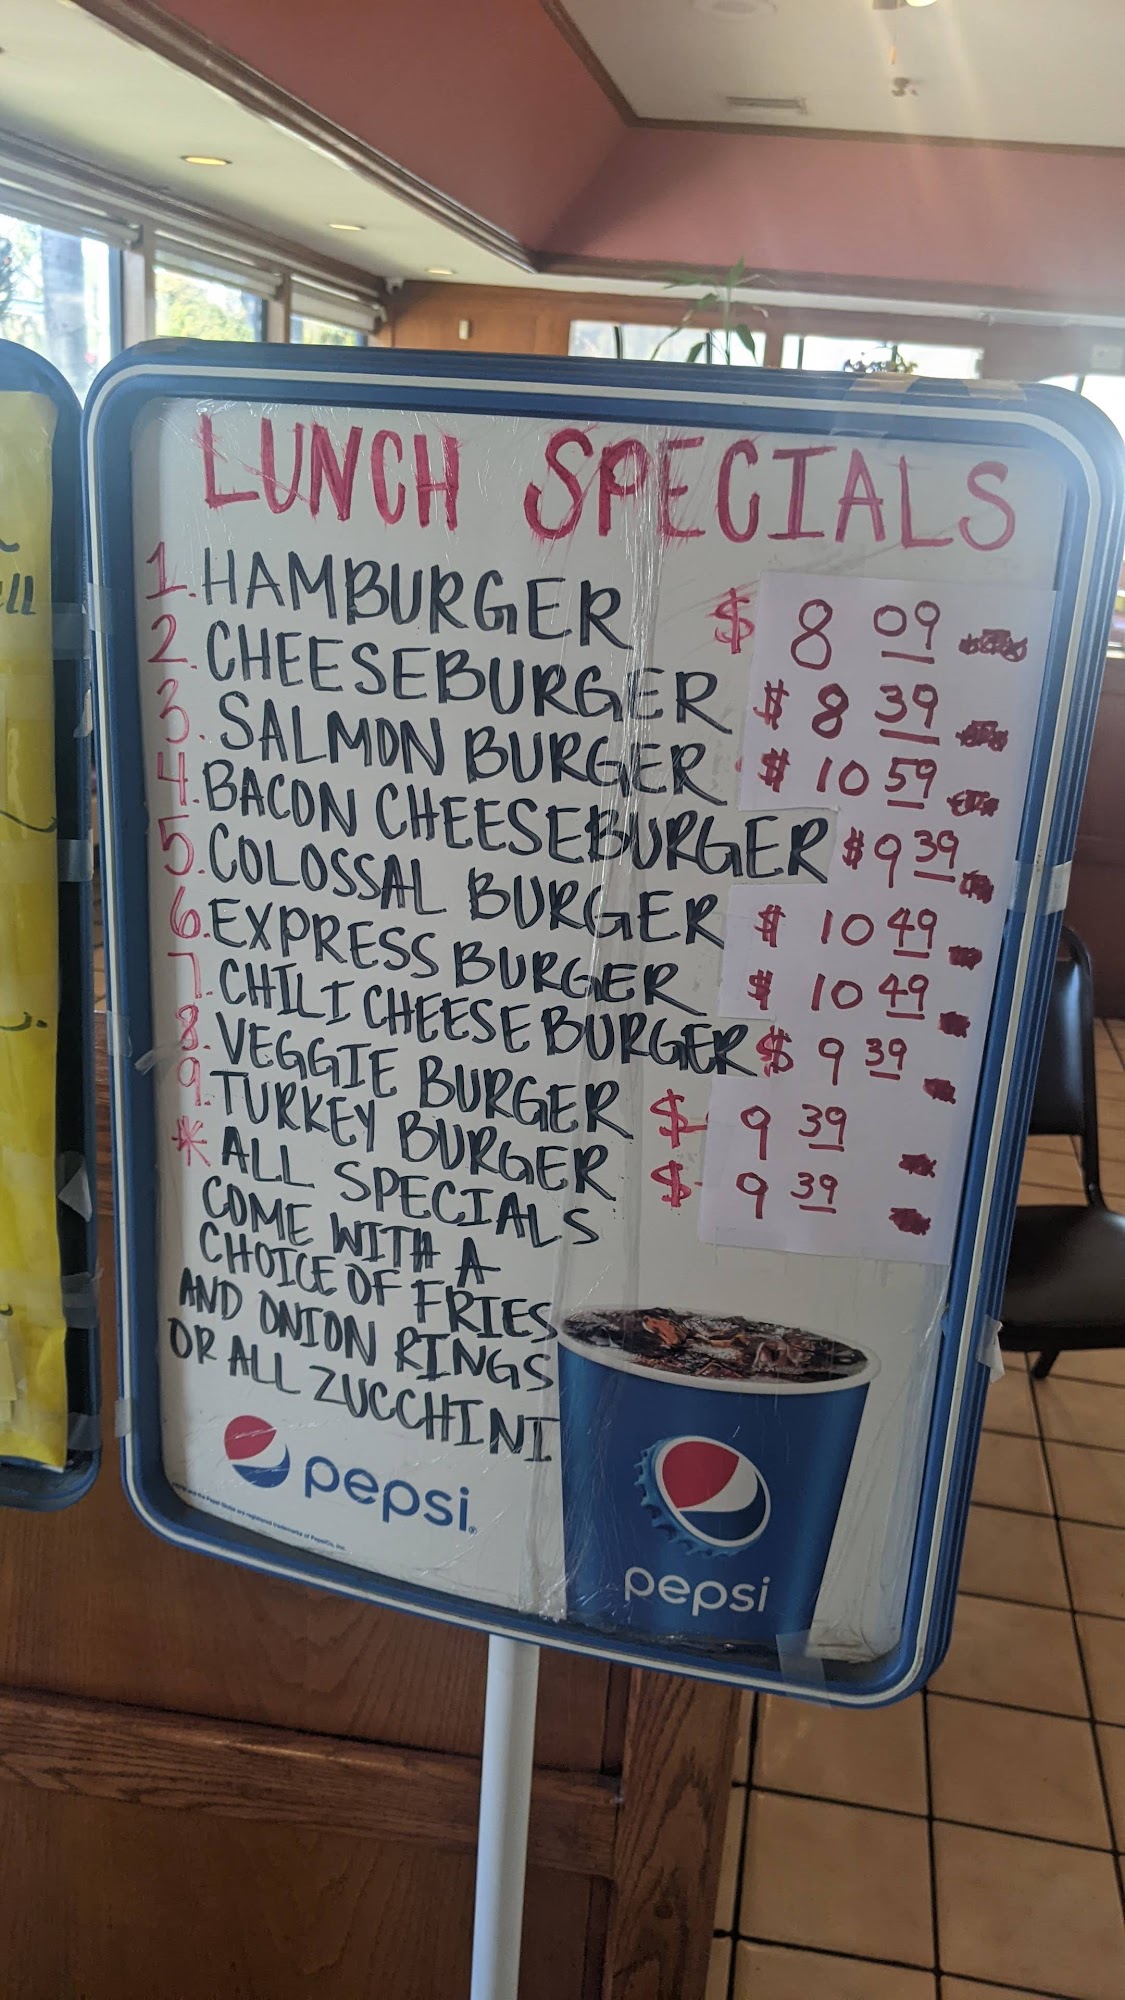 LUNCH SPECIALS
1. HAMBURGER $ 8 09
2. CHEESEBURGER $ 8 39
3. SALMON BURGER $ 10 59
4. BACON CHEESEBURGER $ 9 39
5. COLOSSAL BURGER $ 10 49
6. EXPRESS BURGER $ 10 49
7. CHILI CHEESE BURGER $ 9 39
8. VEGGIE BURGER $ 9 39
9. TURKEY BURGER $ 9 39
* ALL SPECIALS
COME WITH A
CHOICE OF FRIES
AND ONION RINGS
OR ALL ZUCCHINI
pepsi
pepsi